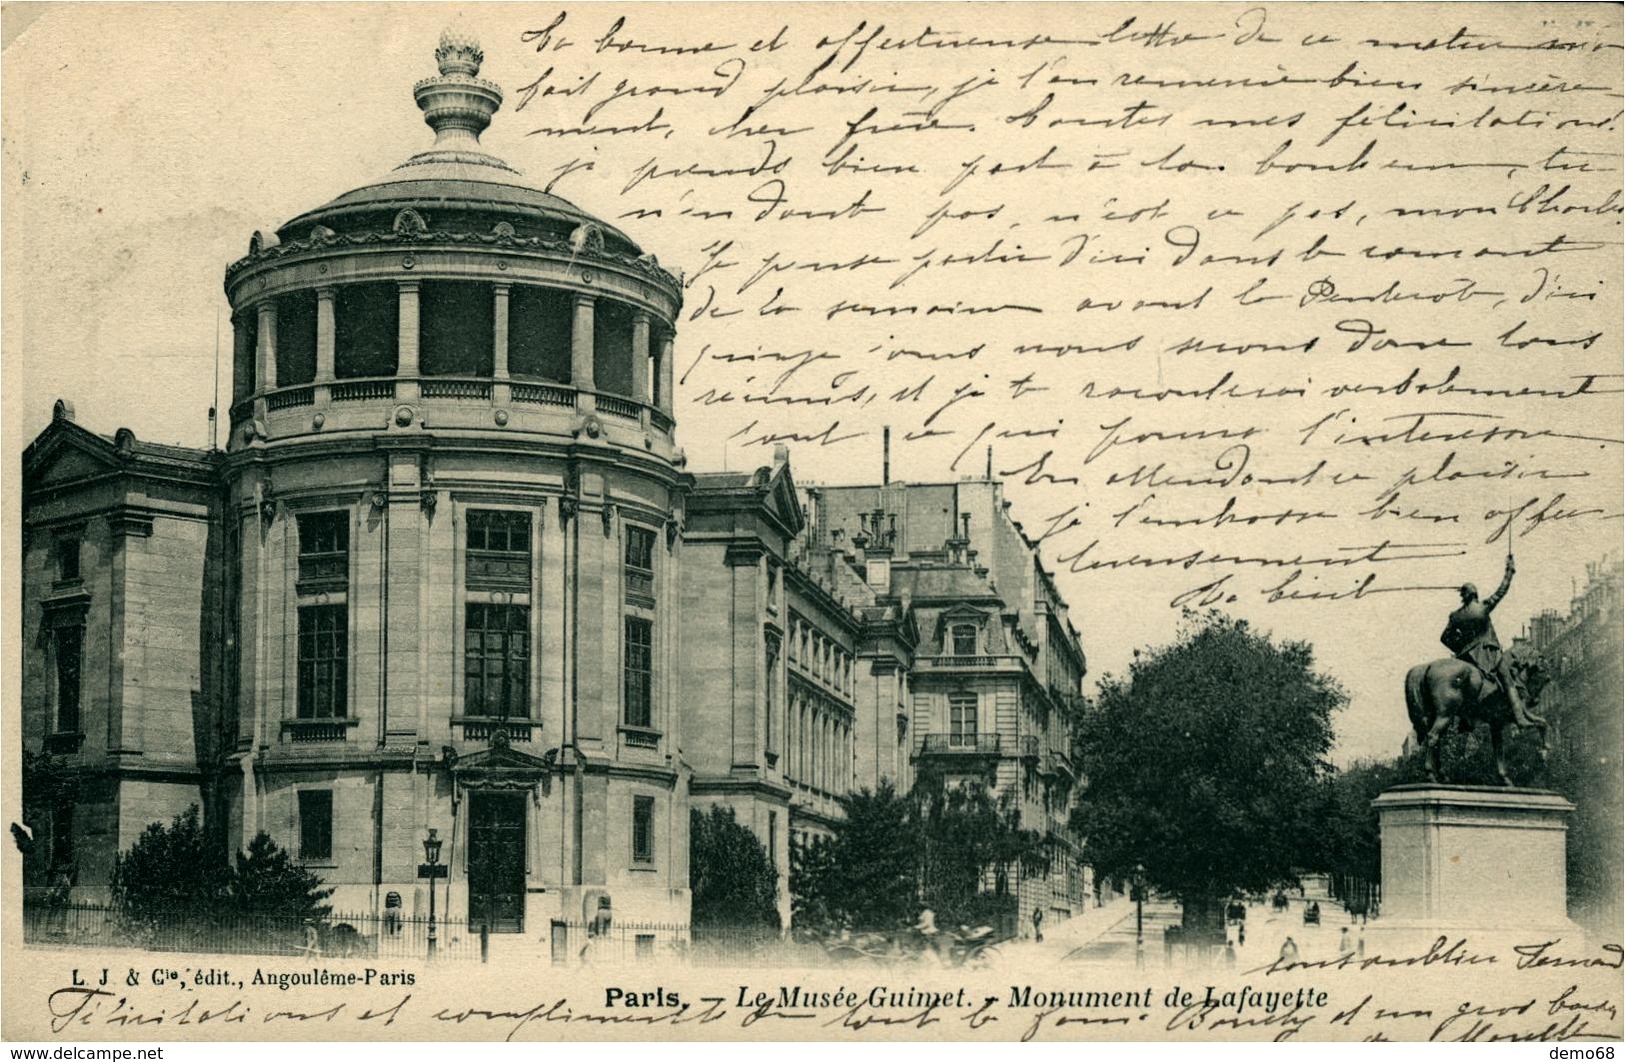 Ta bonne et affectueuse lettre de ce matin m'a
fait grand plaisir, je t'en remercie bien sincère-
ment, cher frère. Toutes mes félicitations.
je prends bien part à ton bonheur, tu
n'en doute pas, n'est ce pas, mon Charles.
Je pense partir d'ici dans le courant
de la semaine avant la Pentecôte, d'ici
quinze jours nous serons donc tous
réunis, et je te raconterai verbalement
tout ce qui pourra t'intéresser.
En attendant ce plaisir
je t'embrasse bien affec-
tueusement
Ta
sans oublier Fernand
L. J. & Cie, édit., Angoulême-Paris
Paris. - Le Musée Guimet. - Monument de Lafayette
Félicitations et compliments de tout le et un gros
de
demo68